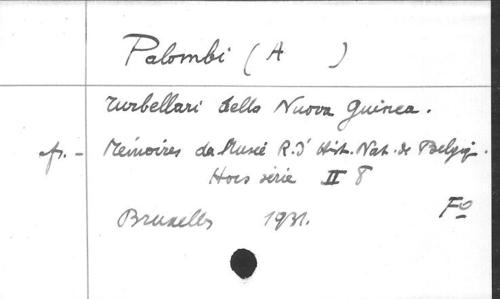 Palombi (A )
Turbellari della Nuova Guinea.
cfr. - Mémoires du Musée R. d' Hist. Nat. de Belgiq.
Hors série II 8
Bruxelles 1931. Fº